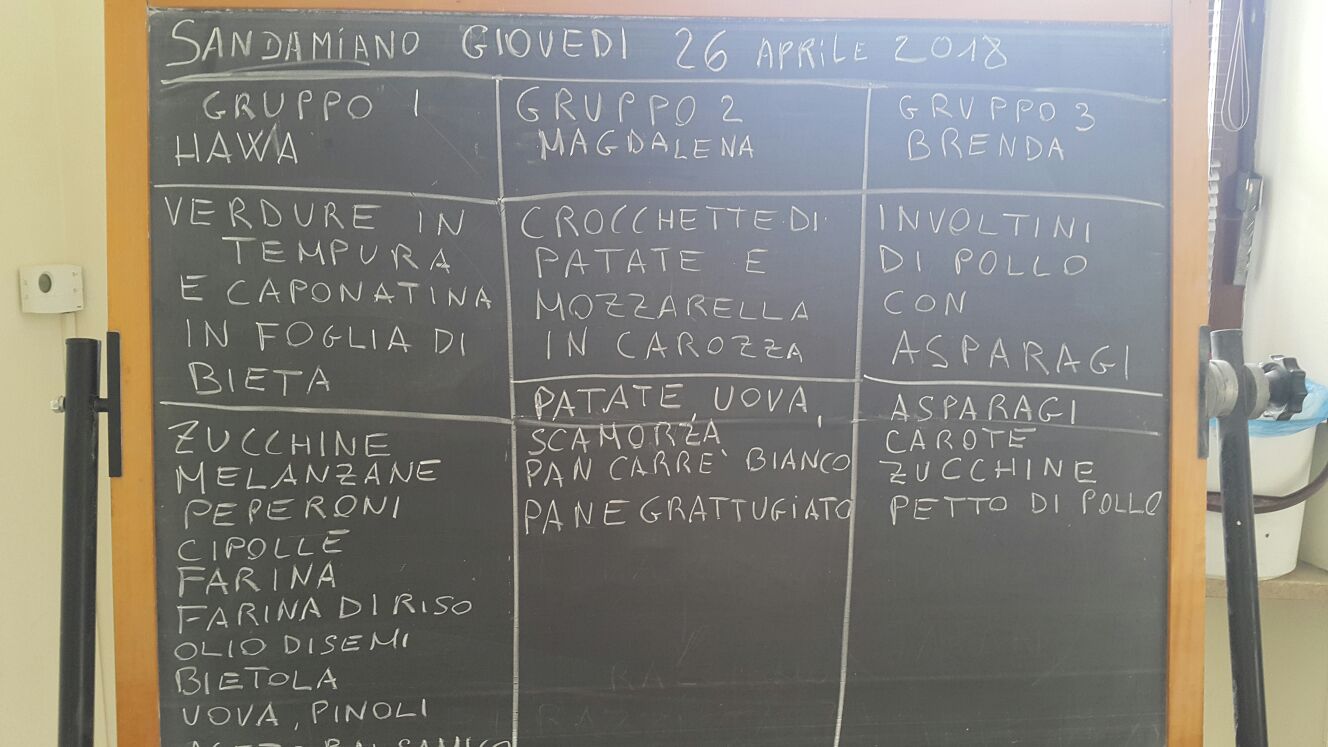 SANDAMIANO GIOVEDI 26 APRILE 2018
GRUPPO 1
HAWA
VERDURE IN
TEMPURA
E CAPONATINA
IN FOGLIA DI
BIETA
ZUCCHINE
MELANZANE
PEPERONI
CIPOLLE
FARINA
FARINA DI RISO
OLIO DI SEMI
BIETOLA
UOVA, PINOLI
ACETO BALSAMICO
GRUPPO 2
MAGDALENA
CROCCHETTE DI
PATATE E
MOZZARELLA
IN CAROZZA
PATATE, UOVA,
SCAMORZA
PAN CARRE' BIANCO
PANE GRATTUGIATO
GRUPPO 3
BRENDA
INVOLTINI
DI POLLO
CON
ASPARAGI
ASPARAGI
CAROTE
ZUCCHINE
PETTO DI POLLO